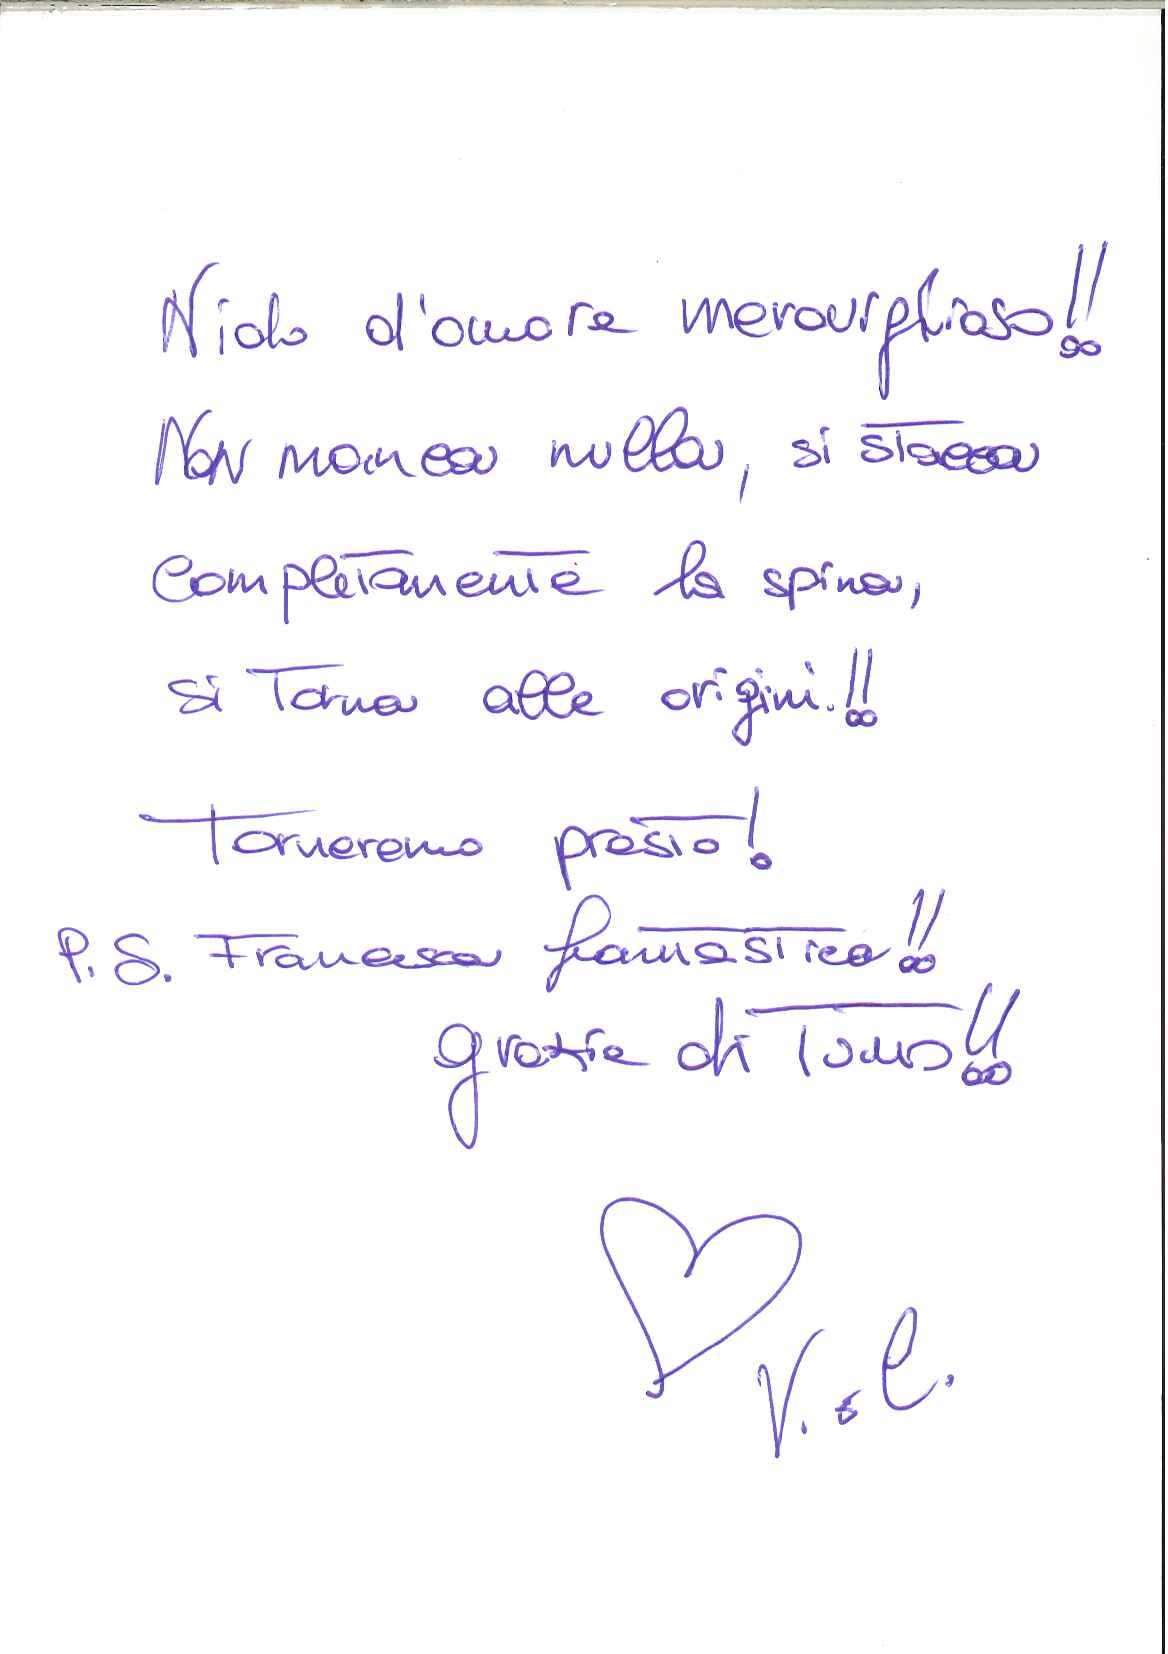 Nido d'amore meraviglioso!!
Non manca nulla, si stacca
completamente la spina,
si torna alle origini.!!
Torneremo presto!
P.S. Francesca fantastica!!
grazie di tutto!!
V. e C.